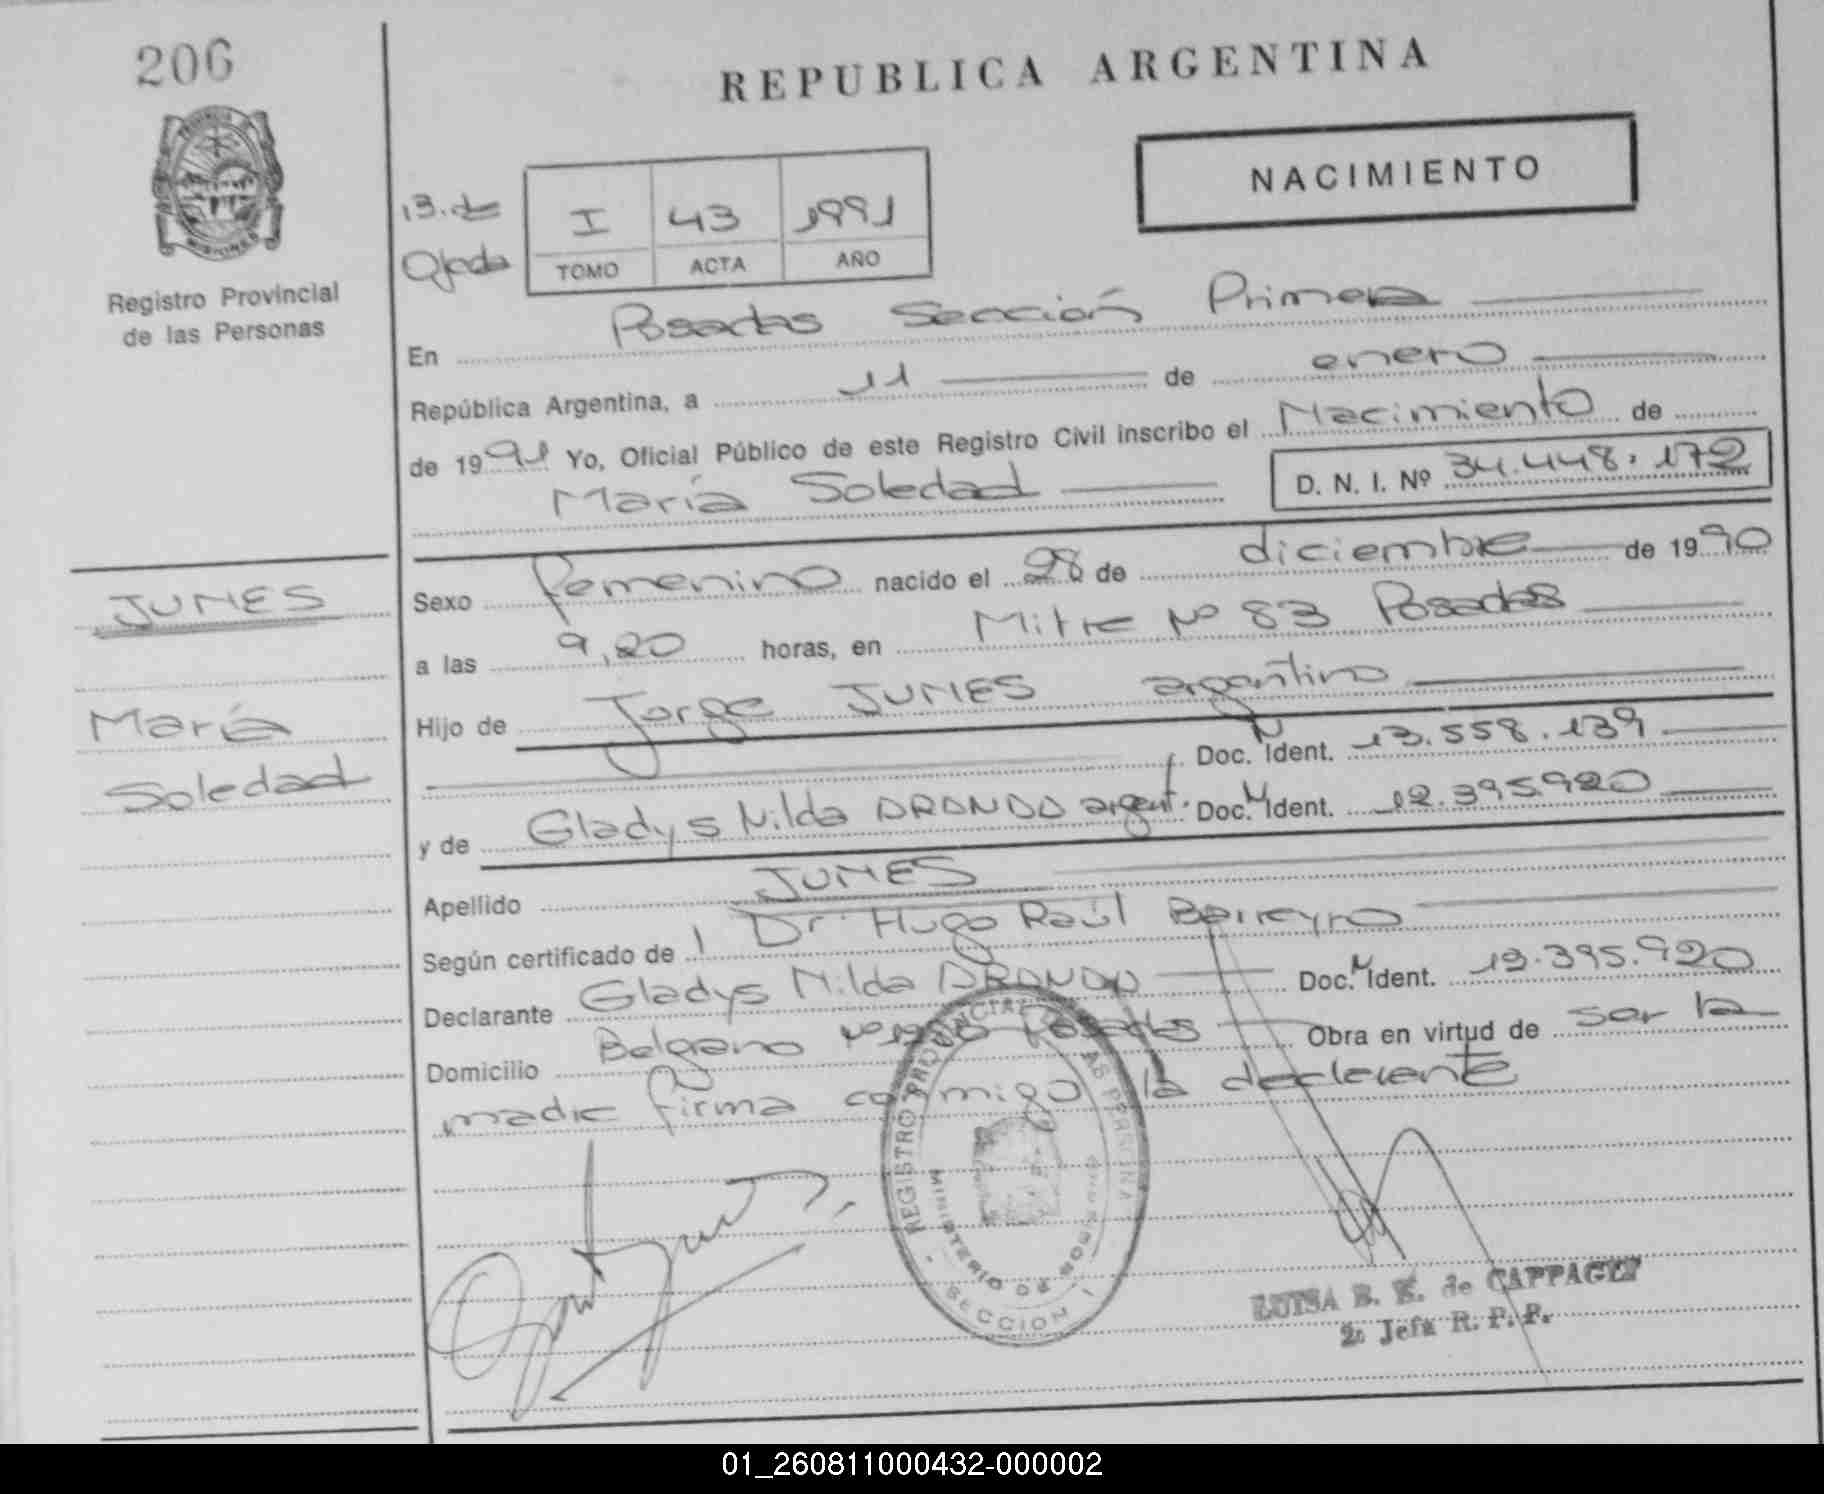 206
REPUBLICA ARGENTINA
NACIMIENTO
13. de
Ojeda
I 43 1991
TOMO ACTA AÑO
Registro Provincial
de las Personas
En Posadas Sección Primera
República Argentina, a 11 de enero
de 1991 Yo, Oficial Público de este Registro Civil inscribo el Nacimiento de
María Soledad D. N. I. Nº 34.448.172
JUNES
María
Soledad
Sexo femenino nacido el 28 de diciembre de 1990
a las 9,20 horas, en Mitre Nº 83 Posadas
Hijo de Jorge JUNES argentino
Doc. N Ident. 13.558.139
y de Gladys Nilda ARONDO argent. Doc. N Ident. 12.395.920
Apellido JUNES
Según certificado de Dr Hugo Raúl Barreyro
Declarante Gladys Nilda ARONDO Doc. N Ident. 12.395.920
Domicilio Belgrano Nº Posadas Obra en virtud de ser la
madre firma conmigo la declarante
REGISTRO PROVINCIAL DE LAS PERSONAS
MINISTERIO DE GOBIERNO
SECCION I
LUISA B. K. de CAPPAGLI
2º Jefa R. P. P.
01_260811000432-000002